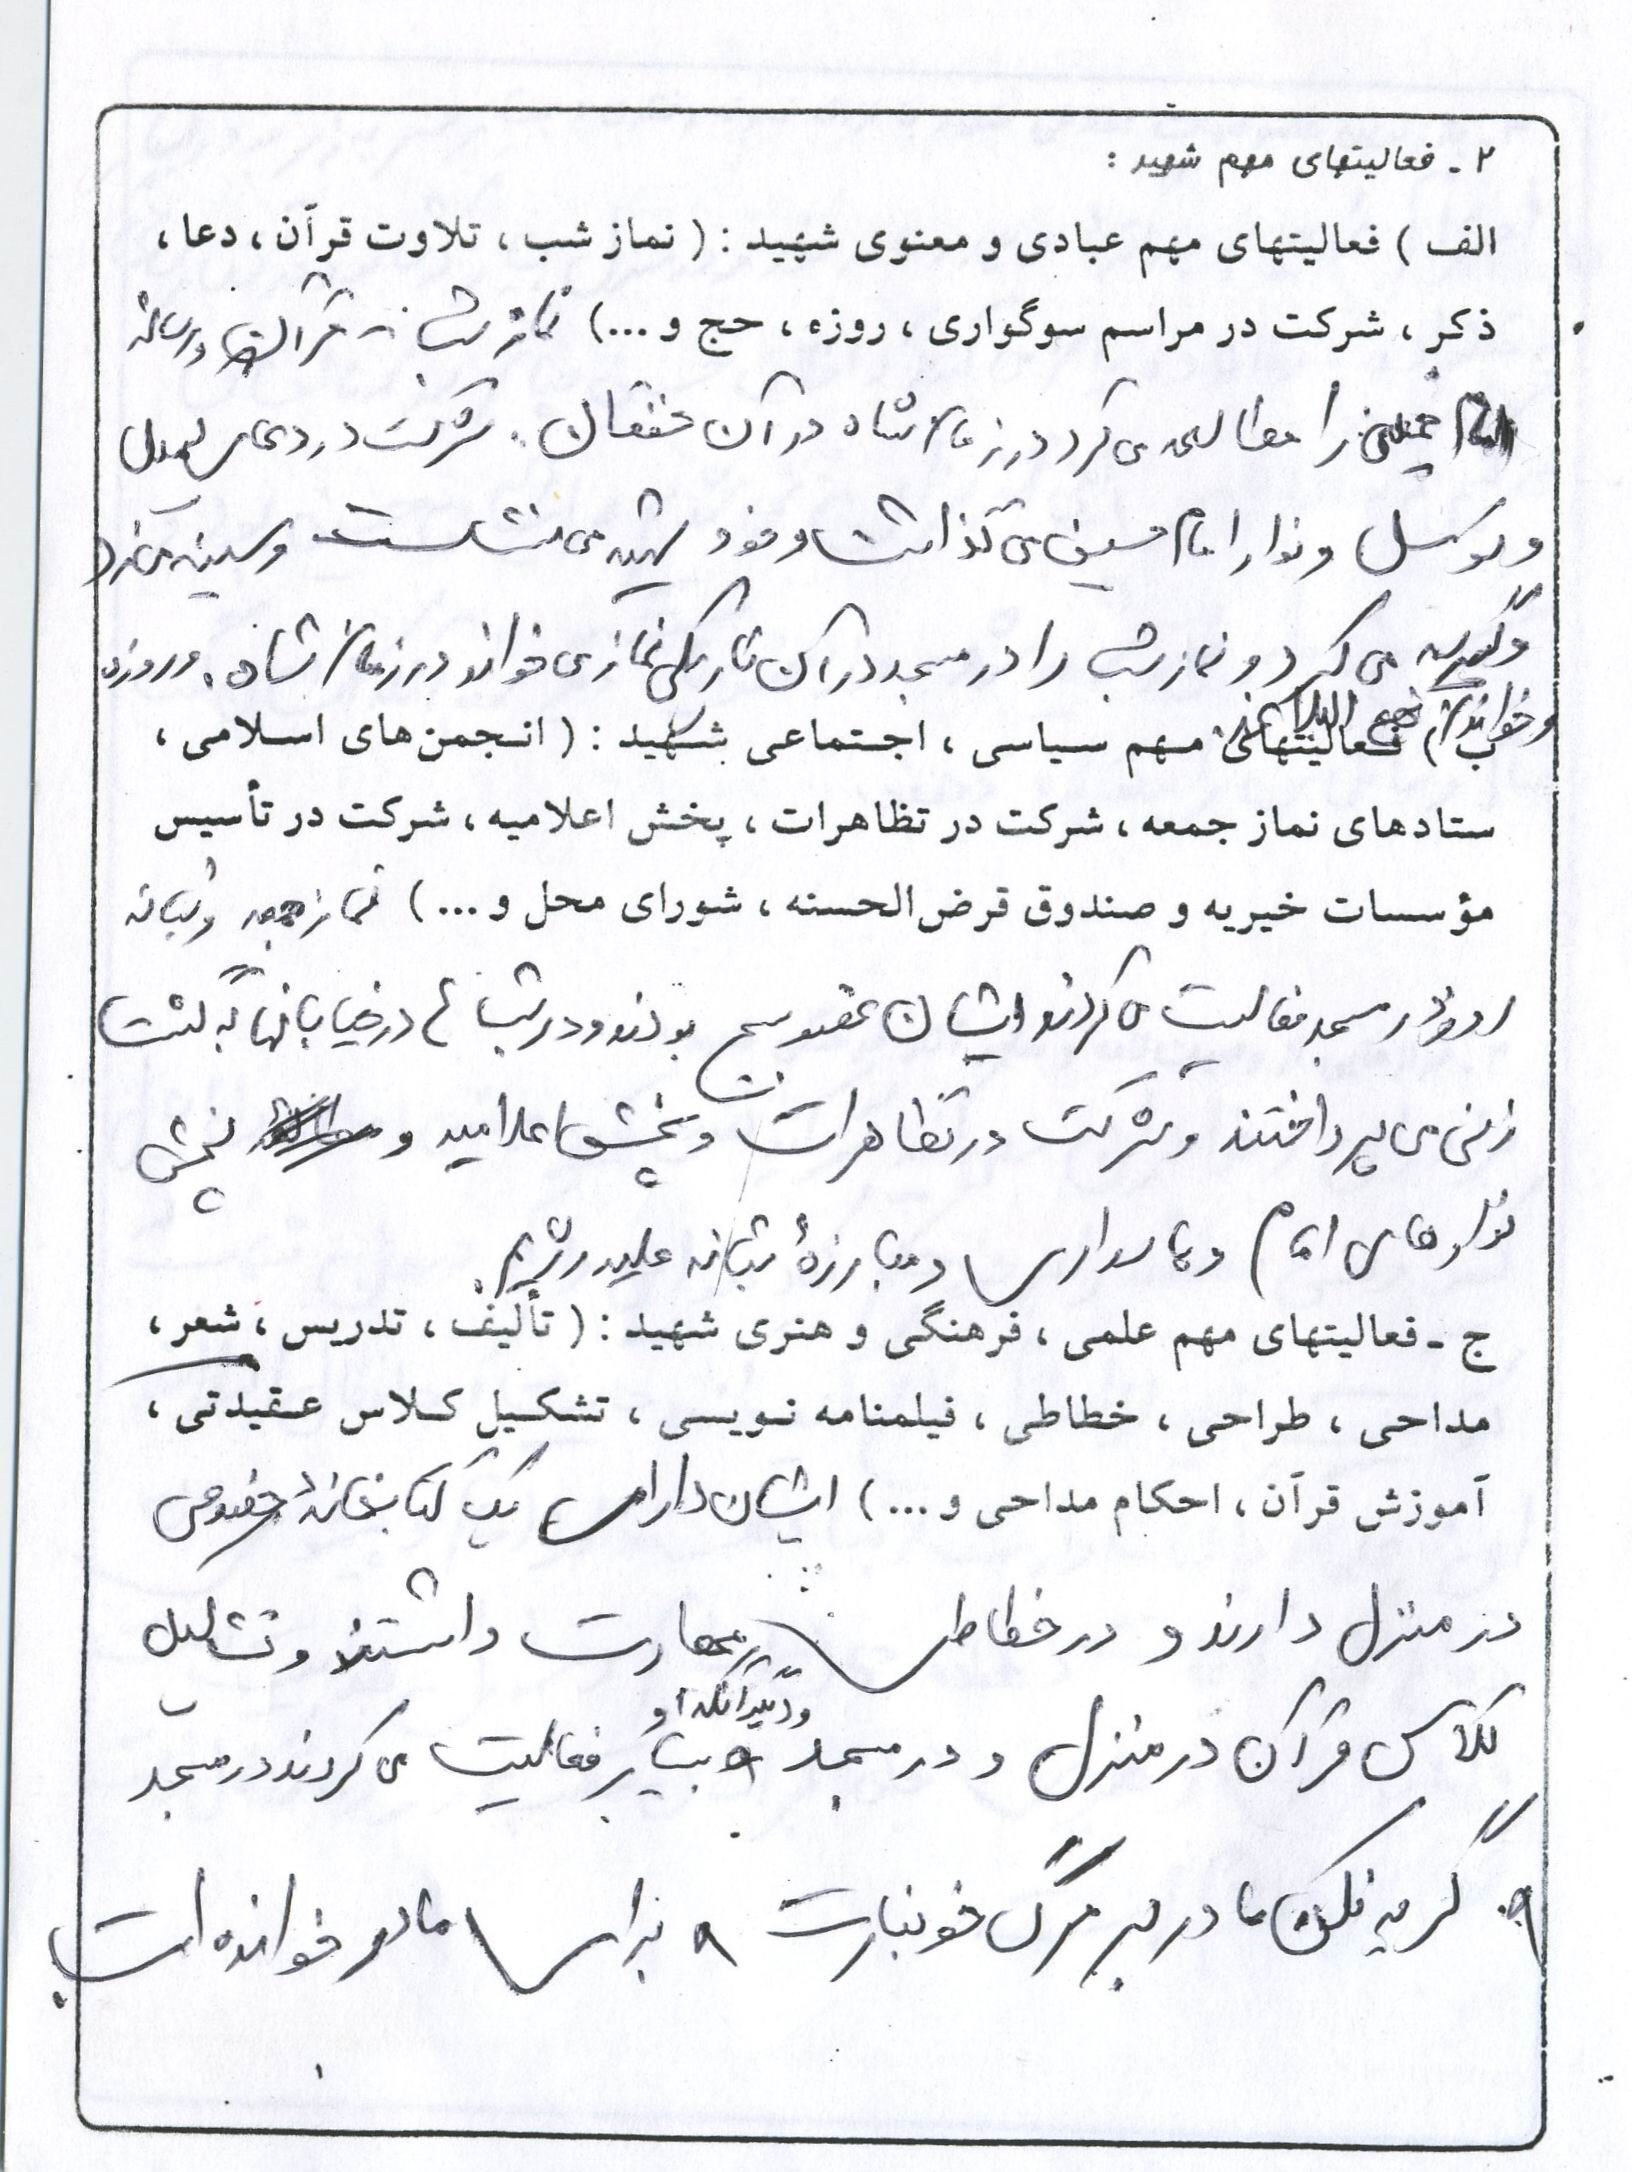 ۲ - فعالیتهای مهم شهید :
الف ) فعالیتهای مهم عبادی و معنوی شهید : ( نماز شب ، تلاوت قرآن ، دعا ،
ذکر ، شرکت در مراسم سوگواری ، روزه ، حج و ...) نماز شب - قرآن و رساله
امام خمینی را مطالعه می کرد در زمان شاه در آن خفقان . شرکت در دعای کمیل
و توسل و نوار امام حسین می گذاشت و خود می نشست و سینه می زد
و گریه می کرد و نماز شب را در مسجد در آن تاریکی نماز می خواند در زمان شاه . و روزه
و خواندن نهج البلاغه
ب ) فعالیتهای مهم سیاسی ، اجتماعی شهید : ( انجمن های اسلامی ،
ستادهای نماز جمعه ، شرکت در تظاهرات ، پخش اعلامیه ، شرکت در تأسیس
مؤسسات خیریه و صندوق قرض الحسنه ، شورای محل و ... ) نماز جمعه و شبانه
روز در مسجد فعالیت می کردند ایشان عضو بسیج بودند و در شبها در خیابانها به گشت
زنی می پرداختند و شرکت در تظاهرات و پخش اعلامیه و پخش
نوارهای امام و پاسداری و مبارزهٔ شبانه علیه رژیم .
ج - فعالیتهای مهم علمی ، فرهنگی و هنری شهید : ( تألیف ، تدریس ، شعر ،
مداحی ، طراحی ، خطاطی ، فیلمنامه نویسی ، تشکیل کلاس عقیدتی ،
آموزش قرآن ، احکام مداحی و ... ) ایشان دارای یک کتابخانهٔ خصوصی
در منزل دارند و در خطاطی مهارت داشتند و تشکیل
و دیگر آنکه او
کلاس قرآن در منزل و در مسجد بسیار فعالیت می کردند در مسجد
گریه نکن مادر بر مرگ خونبارت برای مادر خوانده است